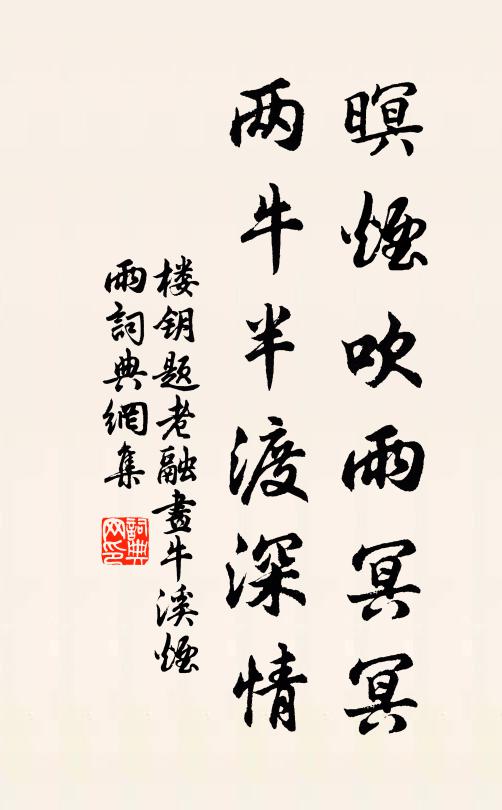 暝煙吹雨冥冥
两牛半渡深情
楼钥题老融畫牛溪煙
雨詞典網集
詞典
网印